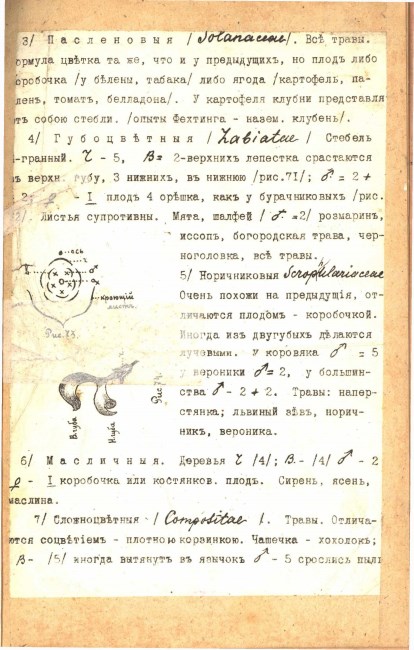 3/ Пасленовыя /Solanaceae/. Всѣ травы.
ормула цвѣтка та же, что и у предыдущихъ, но плодъ либо
оробочка /у бѣлены, табака/ либо ягода /картофель, па-
ленъ, томатъ, белладона/. У картофеля клубни представля
тъ собою стебли. /опыты Фехтинга - назем. клубень/.
4/ Губоцвѣтныя /Labiatae/ Стебель
-гранный. Ч - 5, В = 2-верхнихъ лепестка срастаются
ъ верхн. губу, 3 нижнихъ, въ нижнюю /рис.71/; ♂ = 2 +
2 ♀ - I плодъ 4 орѣшка, какъ у бурачниковыхъ /рис.
Листья супротивны. Мята, шалфей / ♂ =2/ розмаринъ,
иссопъ, богородская трава, чер-
ноголовка, всѣ травы.
5/ Норичниковыя Scrophulariaceae
Очень похожи на предыдущія, от-
личаются плодомъ - коробочкой.
Иногда изъ двугубыхъ дѣлаются
лучевыми. У коровяка ♂ = 5
у вероники ♂ = 2, у большин-
ства ♂ - 2 + 2. Травы: напер-
стянка; львиный зѣвъ, норич-
никъ, вероника.
ось
кроющій
листъ
Рис. 73.
В губа
Н губа
6/ Масличныя. Деревья Ч /4/; В- /4/ ♂ - 2
♀ - I коробочка или костянков. плодъ. Сирень, ясень,
маслина.
7/ Сложноцвѣтныя /Compositae/. Травы. Отлича-
ются соцвѣтіемъ - плотною корзинкою. Чашечка - хохолокъ;
В- /5/ иногда вытянутъ въ язычокъ ♂ - 5 срослись пыль